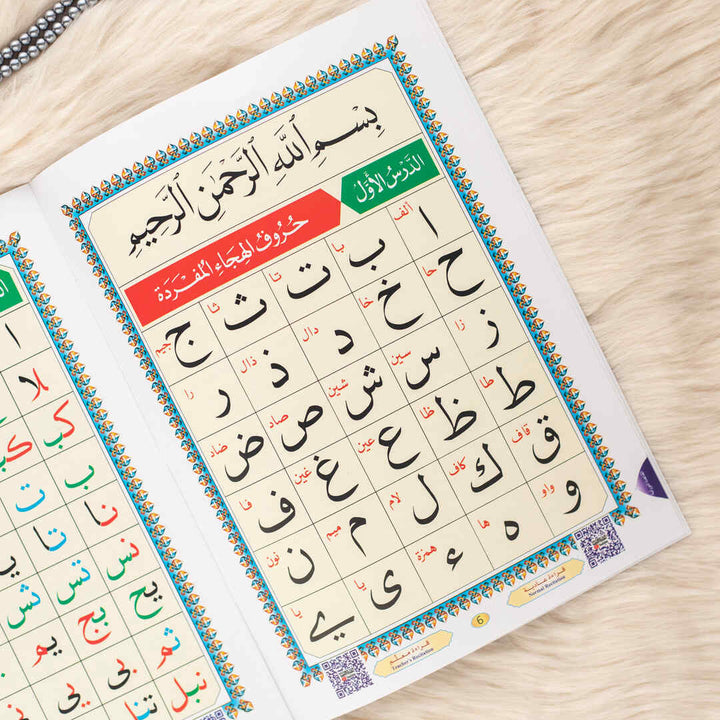 بِسْمِ اللَّهِ الرَّحْمَٰنِ الرَّحِيمِ
الدَّرْسُ الْأَوَّلُ
حُرُوفُ الْهِجَاءِ الْمُفْرَدَةِ
ألف با تا ثا جيم
ا ب ت ث ج
حا خا دال ذال را
ح خ د ذ ر
زا سين شين صاد ضاد
ز س ش ص ض
طا ظا عين غين فا
ط ظ ع غ ف
قاف كاف لام ميم نون
ق ك ل م ن
واو ها همزة يا يا
و ه ء ي ے
قراءة عادية
Normal Recitation
6
قراءة معلم
Teacher's Recitation
ا
لا
كب
ب ت
نا تا يا
نس تس ثس
يح بج يم
ثم بى يى
نبل تنا